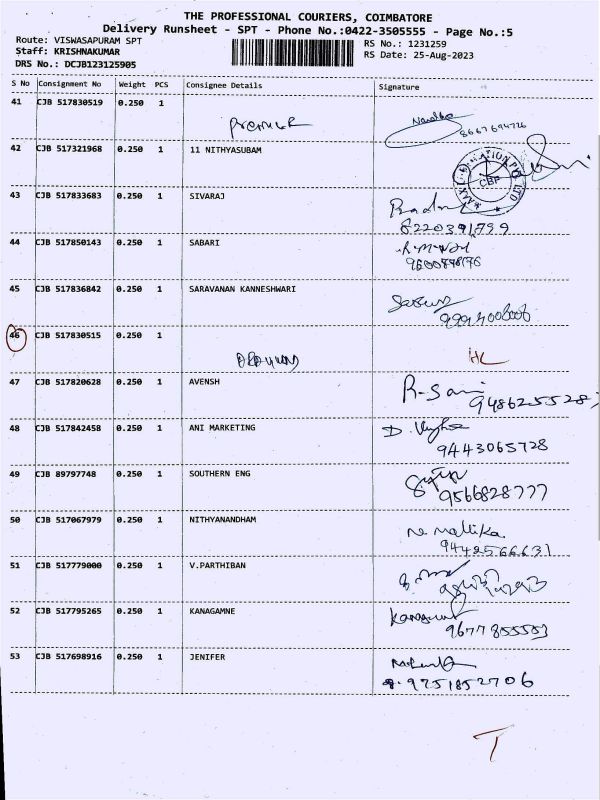 THE PROFESSIONAL COURIERS, COIMBATORE
Delivery Runsheet - SPT - Phone No.:0422-3505555 - Page No.:5
Route: VISWASAPURAM SPT
Staff: KRISHNAKUMAR
DRS No.: DCJB123125905
RS No.: 1231259
RS Date: 25-Aug-2023
S No Consignment No Weight PCS Consignee Details Signature
41 CJB 517830519 0.250 1
Premier
8667694726
42 CJB 517321968 0.250 1 11 NITHYASUBAM
CBE
43 CJB 517833683 0.250 1 SIVARAJ
8220391799
44 CJB 517850143 0.250 1 SABARI
45 CJB 517836842 0.250 1 SARAVANAN KANNESHWARI
46 CJB 517830515 0.250 1
HL
47 CJB 517820628 0.250 1 AVENSH
R-Sani
9486255287
48 CJB 517842458 0.250 1 ANI MARKETING
D.
9443065728
49 CJB 89797748 0.250 1 SOUTHERN ENG
9566828777
50 CJB 517067979 0.250 1 NITHYANANDHAM
Mallika
9442566631
51 CJB 517779000 0.250 1 V.PARTHIBAN
52 CJB 517795265 0.250 1 KANAGAMNE
9677855583
53 CJB 517698916 0.250 1 JENIFER
9751852706
T